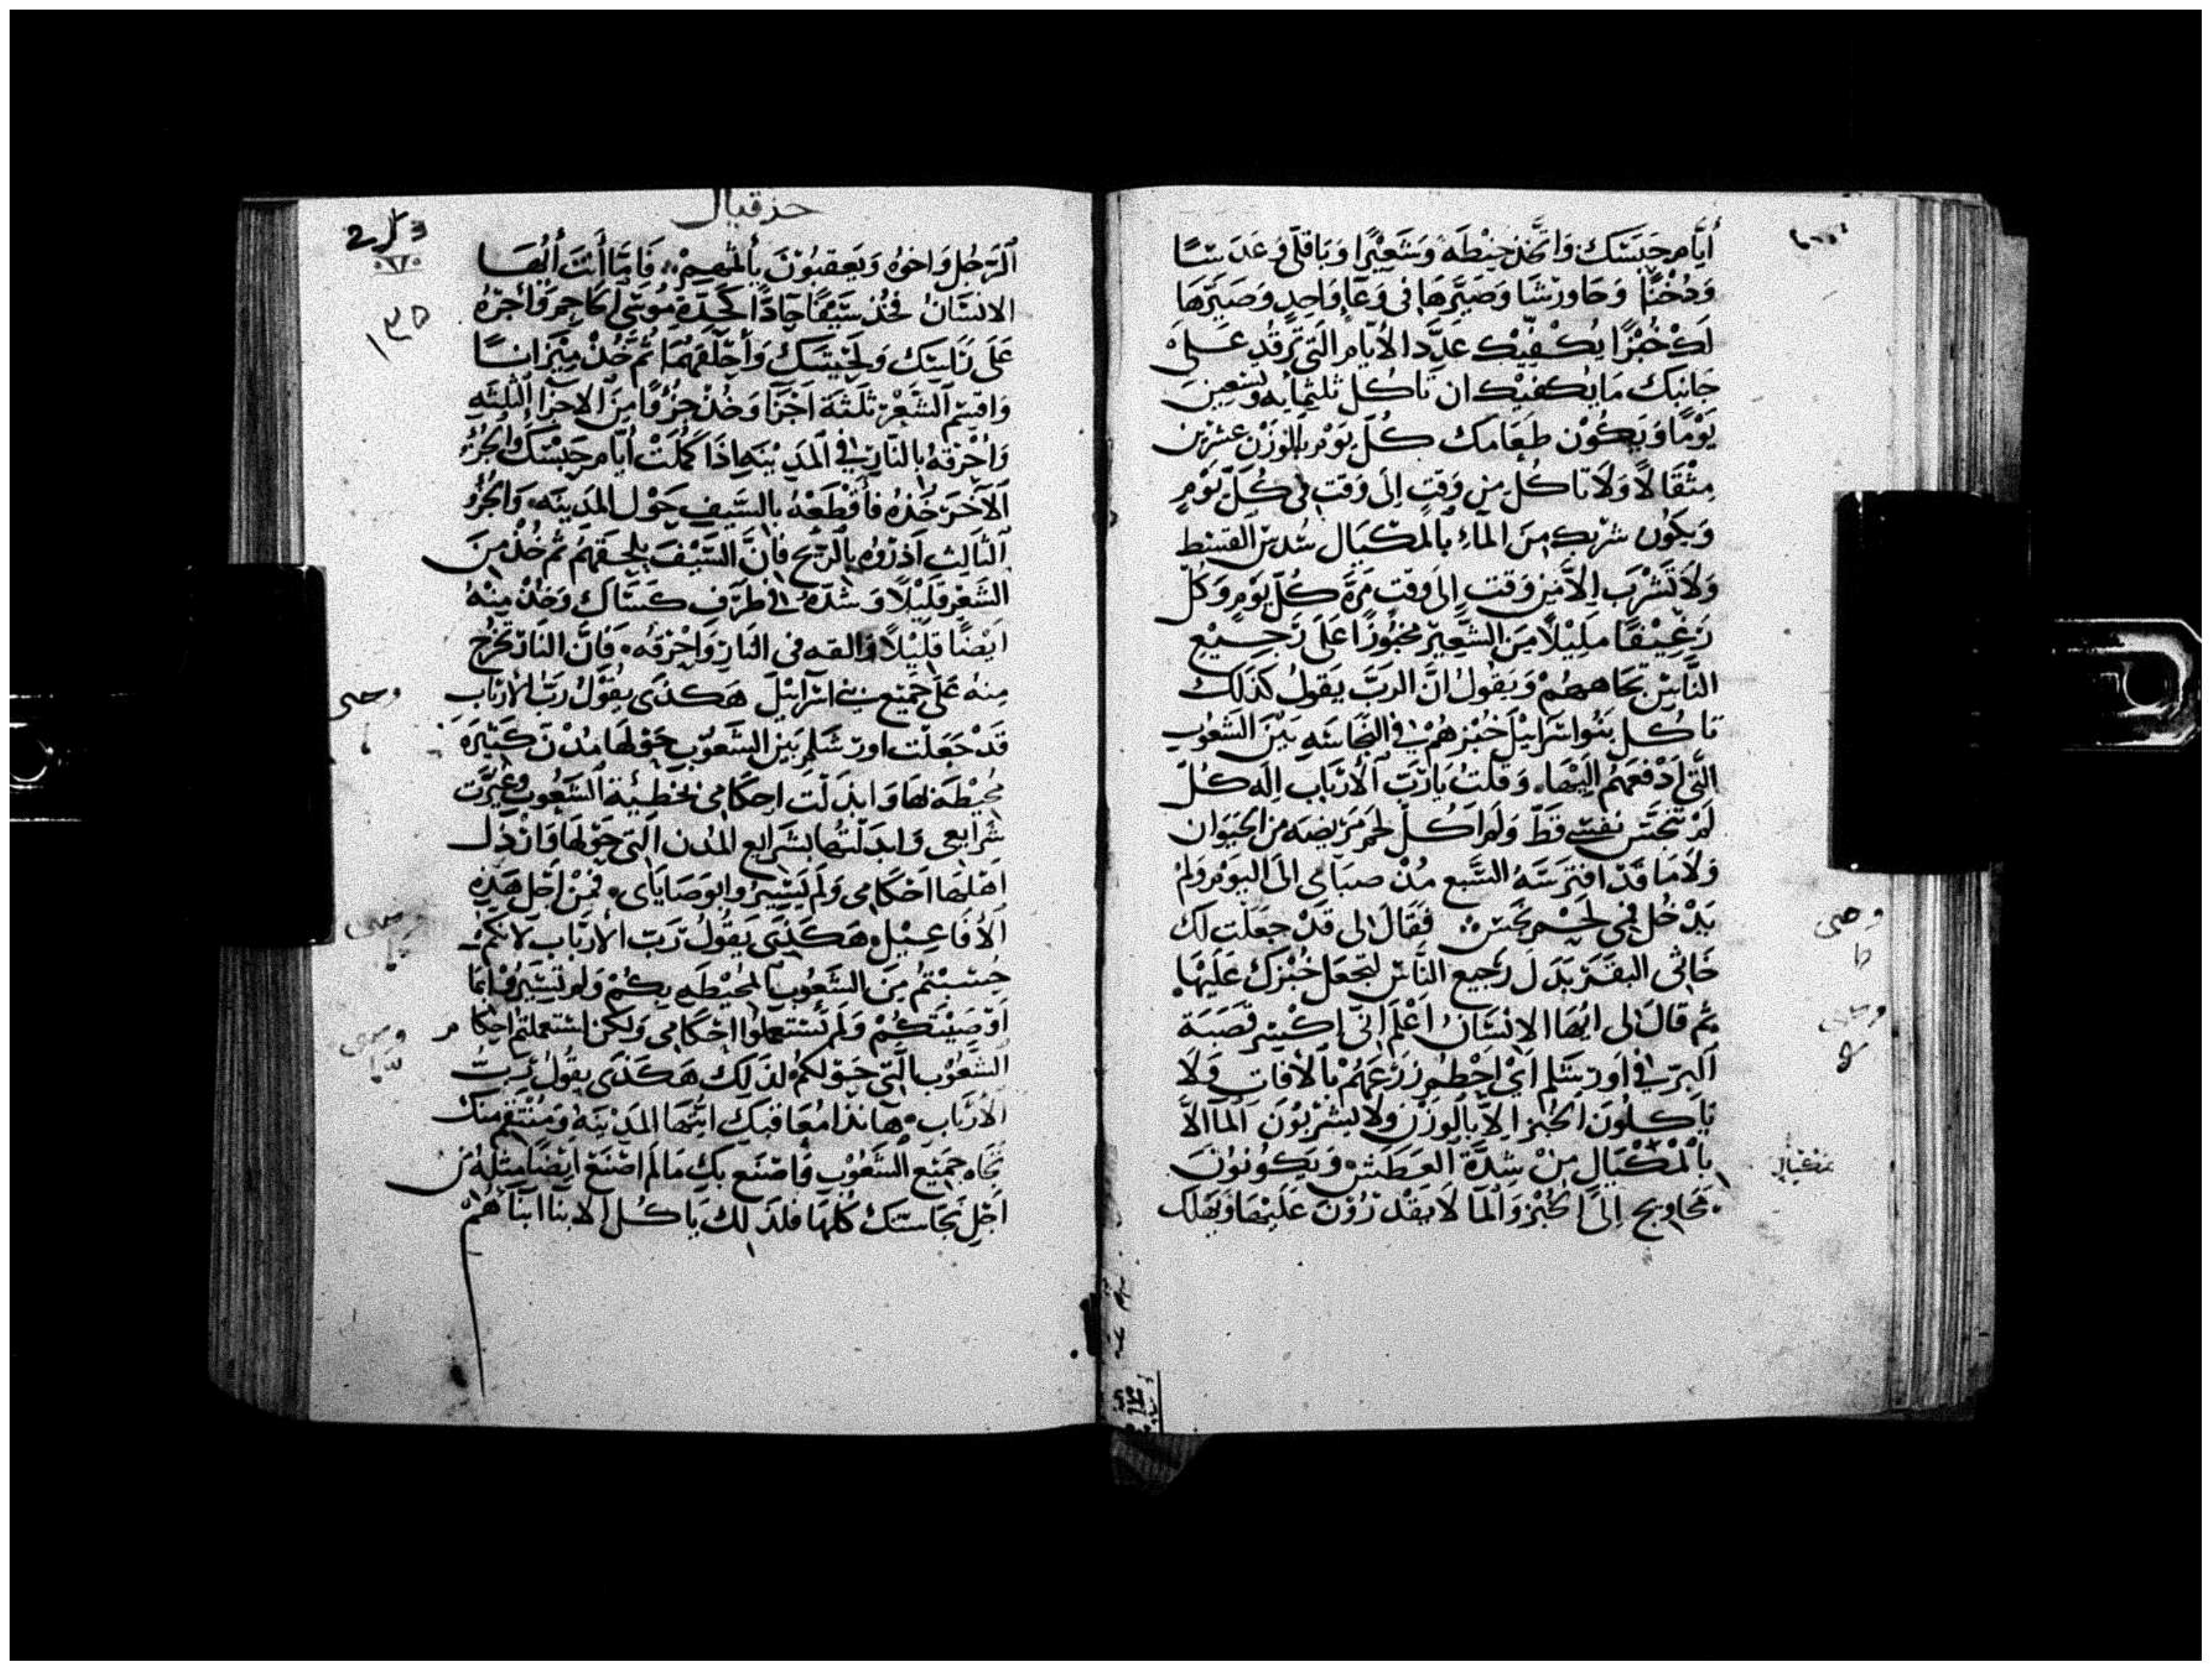 أيَّام حَبْسَك وَاتَّخذ حِنْطَه وَشَعِيْرًا وَبَاقلّى وَعَدَسًا
وَدُخْنًا وَجَاوَرْسًا وَصَيّرهَا في وَعَآءٍ وَاحِدٍ وَصَيّرَهَا
لَك خُبْزًا يكفيْك عدَد الأيَّام الّتي تَرقُد عَلَى
جَانبك مَا يكفيْك ان تَاكل ثلثمايه وتسعين
يَوْمًا وَيَكُوْن طَعَامك كلّ يَوْم بالوَزْن عشرين
مثْقَالًا وَلَا تاكل من وَقتٍ إلى وَقتٍ في كلّ يَوْمٍ
وَيكوُن شربك من المآءِ بالمكيَال سُدس القسْط
وَلَا تَشْرَب إلاَّ من وَقت إلى وَقت مَرَّة كلّ يَوْمٍ وَكُل
رَغِيْفًا مليْلًا من الشَعِير مخبُوزًا عَلَى رَجيْع
النَّاس تجاههُم وَيَقُولُ انَّ الربَّ يَقولُ كَذَلك
تاكل بَنُو اسرَاييْل خبْزهُمْ في النَّجَاسَه بَيْنَ الشعُوب
الَّتي ادْفعهُمْ إليْهَا، وَقلتُ يَارَبّ الأرْبَاب اِله كُلّ
لَمْ تنجَّسْ نفسي قطّ وَلَم آكلْ لحم مَريضه من الحيَوان
وَلَا مَا قدْ افترَسَهُ السَّبع مُنْ صبَآي الى اليَوْم وَلمْ
يَدْخل في لَحْم نجس فَقَال لى قَدْ جعَلت لك
خَاثى البقَر بَدَل رَجيع النَّاس لتجعَل خُبزك عَلَيهَا
ثم قال لى ايّهَا الانسَان اعْلَم انّي اكسر قَصَبَة
البرّ في اورشَلم ايْ احْطم زرْعَهُمْ بالآفات وَلَا
يَأكلُون الخبز الاَّ بالوزن ولا يَشرَبُوْن المآ الاَّ
بالمكيَال مِنْ شِدَّة العَطَش وَيَكُونوُنَ
محَاويج إلى الخُبز وَالمآ لَا يقْدرُوْنَ عَليْهَا وَيهلك
حزقيال
الرَجُل وَاخوُه وَيَعقبُوْنَ بأثمهِمْ، فَامَّا أَنتَ أيُّهَا
الانسَانُ فخُذ سَيْفًا حَادًّا كحدّةِ مُوسَى الحَاجم وَاجزهُ
عَلَى رَاسَك وَلحْيتَك وَأحْلقهُمَا ثُمَّ خُذْ مِيْزَانًا
وَاقسم الشَّعْر ثلَثَة اجْزآ وَخُذْ جُزْوًا من الاجزآ الثلثه
وَأحْرقهُ بالنَّار في المَديْنه اذَا كملَتْ أيَّام حَبْسَك وَالجُزْ
الآخر خُذهُ فأقْطعْهُ بالسَّيف حَوْل المدينه، وَالجزْ
الثَالث اذروْه بالريْح فَانَّ السَّيْف يلحَقهُم ثم خُذْ منَ
الشَعْر قليْلًا وَشدّهُ في طَرَف كسَاك وَخُذْ مِنْهُ
ايضًا قليْلًا والقه في النَار وَاحْرقه، فَانَّ النَار تخرُج
مِنهُ عَلَى جَميْع بني اسرَاييْل هَكذَى يقُوْلُ رَبّ الأرْبَاب
قَدْ جَعَلت اورشَلم بَيْن الشعُوْب حَوْلها مُدْن كثيْرَة
مُحيْطَة بهَا وَابدَلت احكَامى بخطيئة الشعُوب وَغيّرت
شرَايعى وَابدلتهَا بشرَايع المُدن التي حَوْلهَا وَارْذل
اهْلهَا احْكَامى وَلَم يَسيرُوا بوَصَايَاى، فمنْ اجْل هَذِه
الأفَاعيْل هَكَذَى يَقُولُ رَبّ الأرْبَاب لأنكمْ
حُسبْتُم منَ الشعُوب المُحيْطه بكُمْ وَلم تَسيرُوْا بمَا
اوْصيْتكُمْ وَلَم تَستعملُوا احْكَامى وَلكن استعملتم احكام
الشَّعُوْب التي حَوْلكُم لذَلك هَكذَى يقُوْلُ رَبّ
الأرْبَاب، هَا نذَا مُعَاقبك ايّتهَا المديْنه وَمُنْتَقِم منك
تجَاه جميْع الشعُوْب فأصْنَع بكِ مَا لَم اصْنَع ايضًا مثله من
اجْل نجَاستك كلهَا فلذَلك يَاكل الابنا ابنَآهُمْ